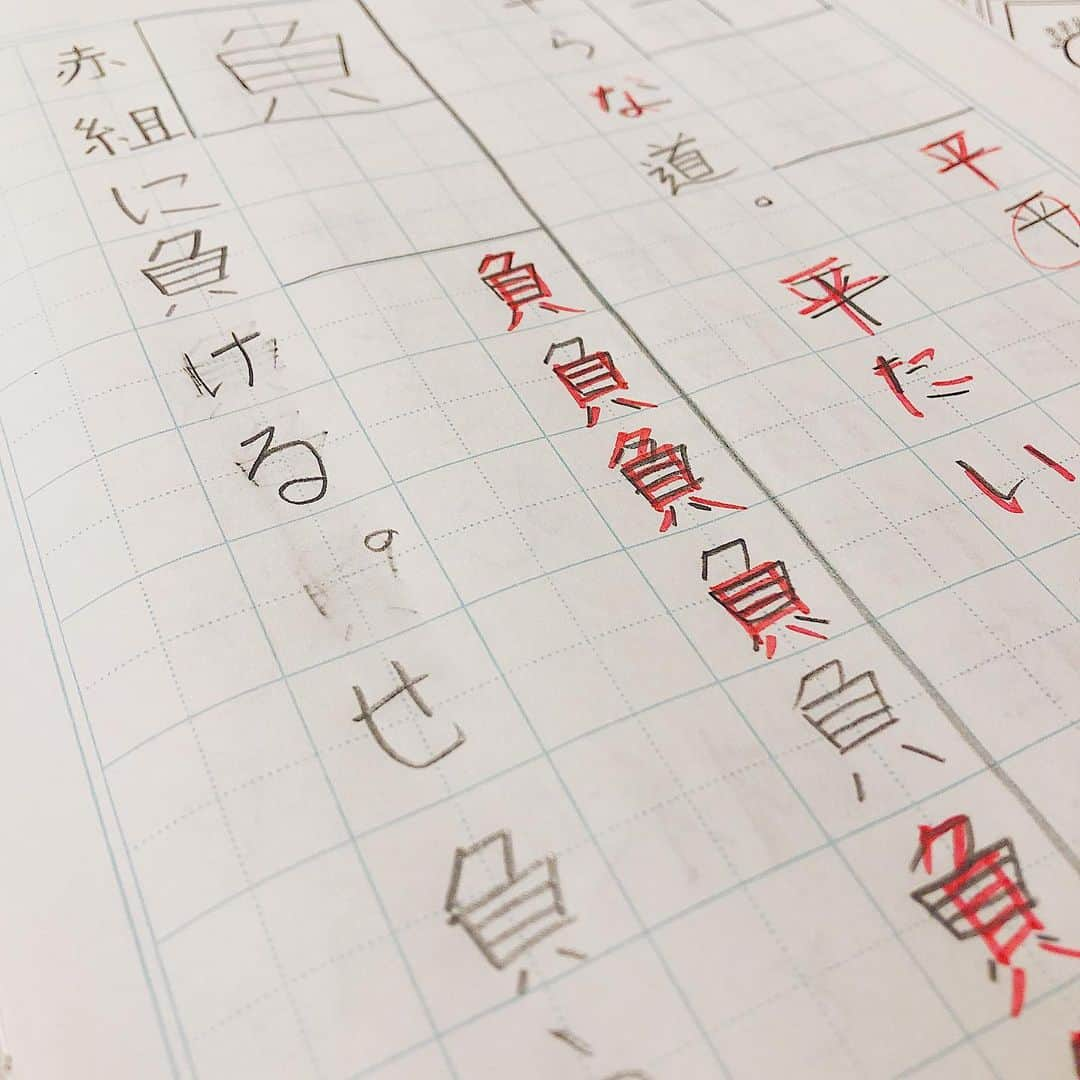 平
平
らな道。
平たい
負負負負負負
負
赤組に負ける。せ
負